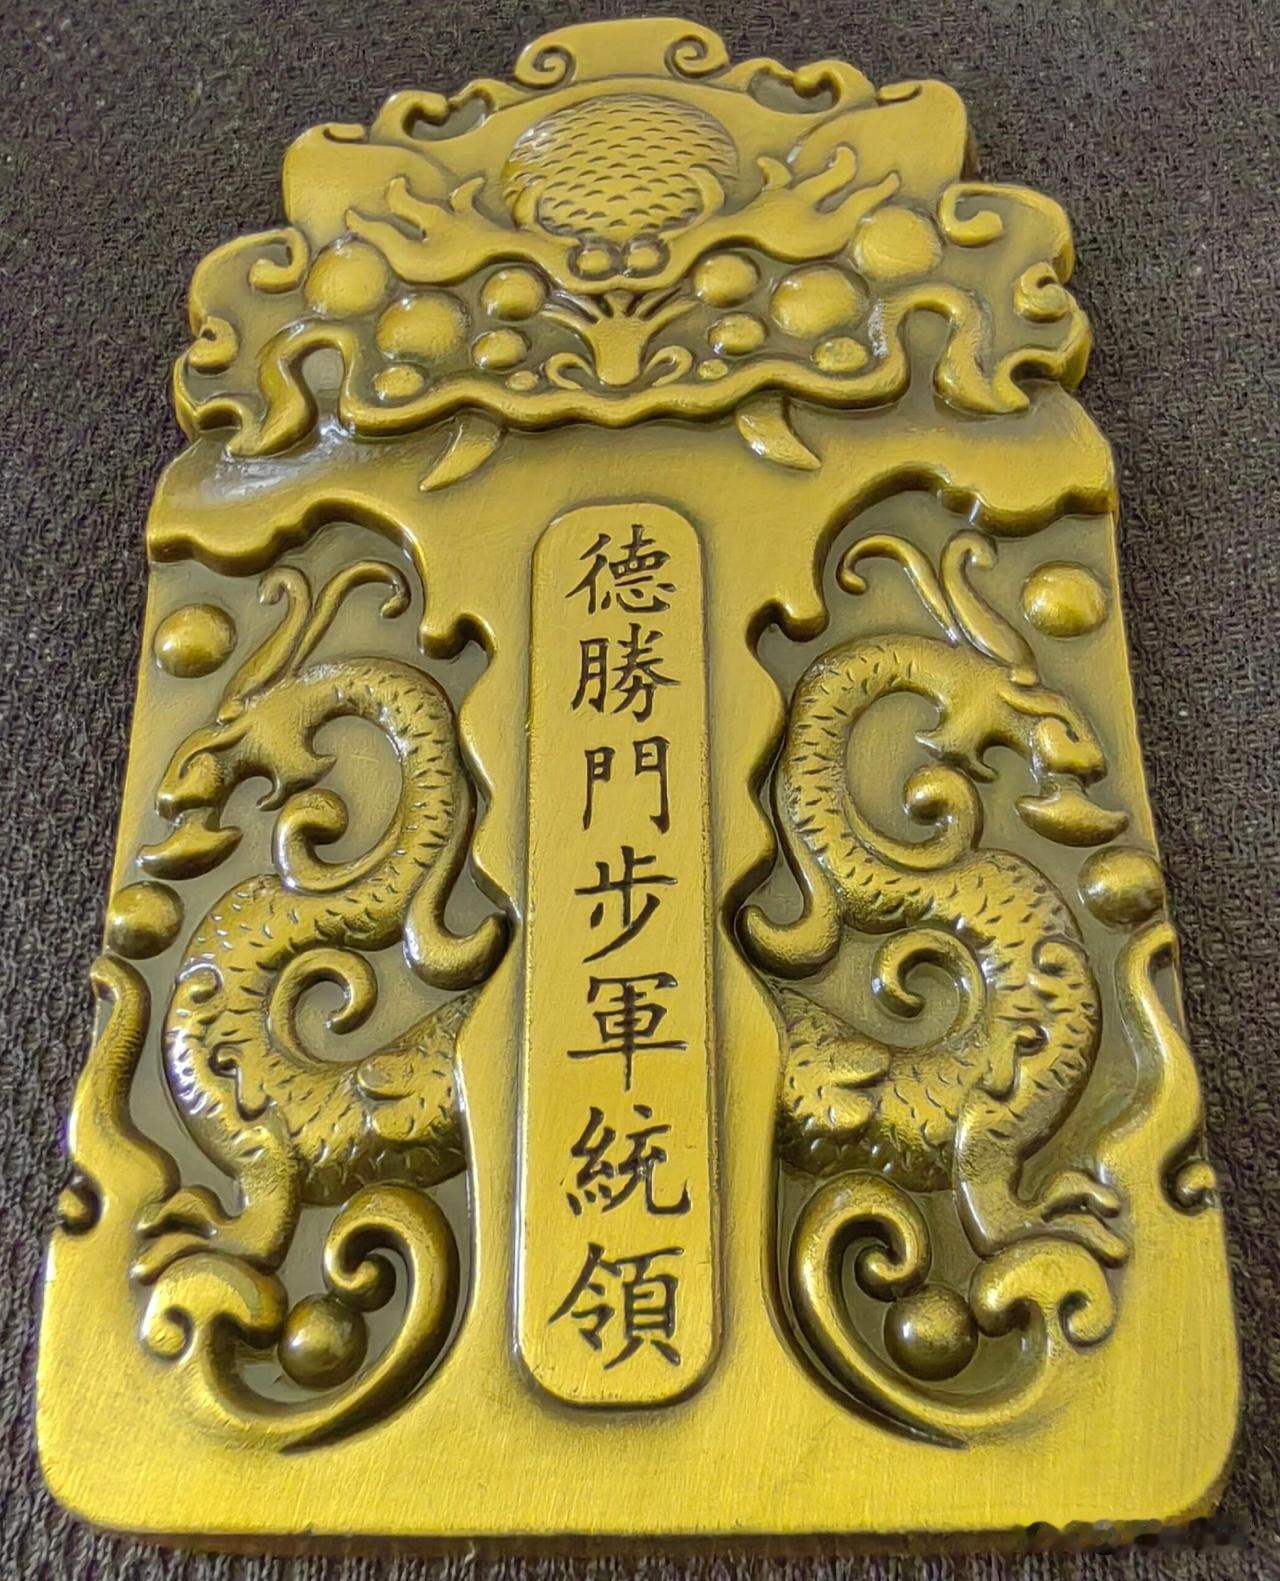 德勝門步軍統領